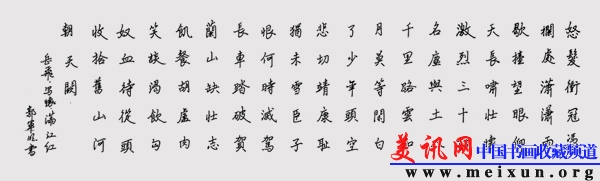 怒髮衝冠憑
欄處瀟瀟雨
歇擡望眼仰
天長嘯壯懷
激烈三十
名塵與土
千里路雲和
月莫等閑白
了少年頭空
悲切靖康恥
猶未雪臣子
恨何時滅駕
長車踏破賀
蘭山缺壯志
飢餐胡虜肉
笑談渴飲匈
奴血待從頭
收拾舊山河
朝天闕
岳飛寫懷滿江紅
郭軍書
美讯网中国书画收藏频道
www.meixun.org